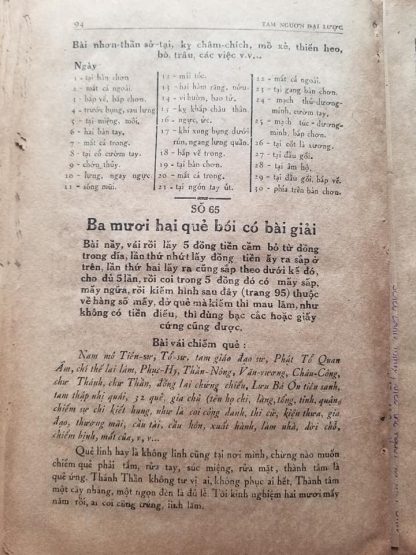 94 TAM NGƯƠN ĐẠI LƯỢC
Bài nhơn-thần sở-tại, kỵ châm-chích, mổ xẻ, thiến heo,
bò, trâu, các việc v.v...
Ngày
1 - tại bàn chơn
2 - mắt cá ngoài.
3 - bắp vế, bắp chơn.
4 - trước bụng, sau lưng
5 - tại miệng, môi.
6 - hai bàn tay.
7 - mắt cá trong.
8 - tại cổ cườm tay.
9 - chơn, thủy.
10 - lưng, ngay ngực
11 - sống mũi.
12 - mái tóc.
13 - hai hàm răng, nướu.
14 - vị huờn, bao tử.
15 - kỵ khắp châu thân.
16 - ngực, ức.
17 - khí xung bụng dưới
rún, ngang lưng quần.
18 - bắp vế trong.
19 - tại bàn chơn.
20 - mắt cá trong.
21 - tại ngón tay út.
22 - mắt cá ngoài.
23 - tại gang bàn chơn.
24 - mạch thủ-dương-
minh, cườm tay.
25 - mạch túc-dương-
minh, bắp chơn.
26 - tại cốt là xương.
27 - tại đầu gối.
28 - tại âm hộ.
29 - tại đầu gối, bắp vế.
30 - phía trên bàn chơn.
SỐ 65
Ba mươi hai quẻ bói có bài giải
Bài nầy, vái rồi lấy 5 đồng tiền cầm bỏ từ đồng
trong dĩa, lần thứ nhứt lấy đồng tiền ấy ra sắp ở
trên, lần thứ hai lấy ra cũng sắp theo dưới kế đó,
cho đủ 5 lần, rồi coi trong 5 đồng đó có mấy sấp,
mấy ngửa, rồi kiếm hình sau đây (trang 95) thuộc
về hàng số mấy, dở quẻ mà kiếm thì mau lắm, như
không có tiền điếu, thì dùng bạc các hoặc giấy
cứng cũng được.
Bài vái chiêm quẻ :
Nam mô Tiên-sư, Tổ-sư, tam giáo đạo sư, Phật Tổ Quan
Âm, chí thế lai lâm, Phục-Hy, Thần-Nông, Văn-vương, Châu-Công,
chư Thánh, chư Thần, đồng lai chứng chiếu, Lưu Bá Ôn tiêu sanh,
tam thập nhị quái, 32 quẻ, gia chủ (tên họ chi, làng, tổng, tỉnh, quận)
chiêm sự chi kiết hung, như là coi công danh, thi cử, kiện thưa, gia
đạo, thương mãi, cầu tài, cầu hôn, xuất hành, làm nhà, dời chỗ,
chiêm bịnh, mất của, v, v...
Quẻ linh hay là không linh cũng tại nơi mình, chừng nào muốn
chiêm quẻ phải tắm, rửa tay, súc miệng, rửa mặt, thành tâm là
quẻ ứng. Thánh Thần không tư vị ai, không phục ai hết, Thành tâm
một cây nhang, một ngọn đèn là đủ lễ. Tôi kinh nghiệm hai mươi mấy
năm rồi, ai coi cũng trúng, linh lắm.